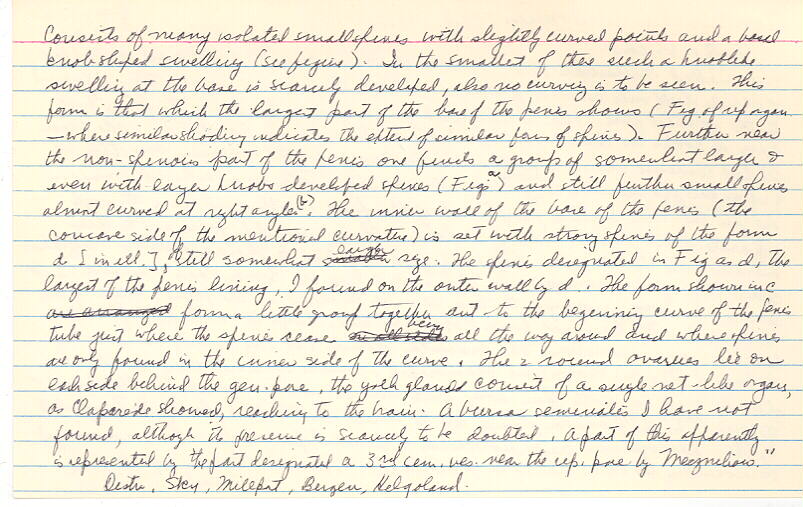 Consists of many isolated small spines with slightly curved points and a basal
knob shaped swelling (see figure). In the smallest of these such a knoblike
swelling at the base is scarcely developed, also no curving is to be seen. This
form is that which the largest part of the base of the penis shows (Fig. of rep organ
—where similar shading indicates the extent of similar form of spines). Further near
the non-spinous part of the penis one finds a group of somewhat larger &
even with larger knobs developed spines (Fig a) and still further small spines
almost curved at right angles (b). The inner wall of the base of the penis (the
concave side of the mentioned curvature) is set with strong spines of the form
d [in ill.], still somewhat smaller larger size. The spines designated in Fig as d, the
largest of the penis lining, I found on the outer wall by d. The form shown in c
are arranged form a little group together out to the beginning curve of the penis
tube just where the spines cease all the way around and where spines
are only found in the inner side of the curve. The 2 round ovaries lie on
each side behind the gen. pore, the yolk glands consist of a single net-like organ,
as Claparede showed, reaching to the brain. A bursa seminalis I have not
found, although its presence is scarcely to be doubted. A part of this apparently
is represented by the part designated a 3rd sem. ves. near the rep. pore by
Distr. Sky, Millport, Bergen, Helgoland.